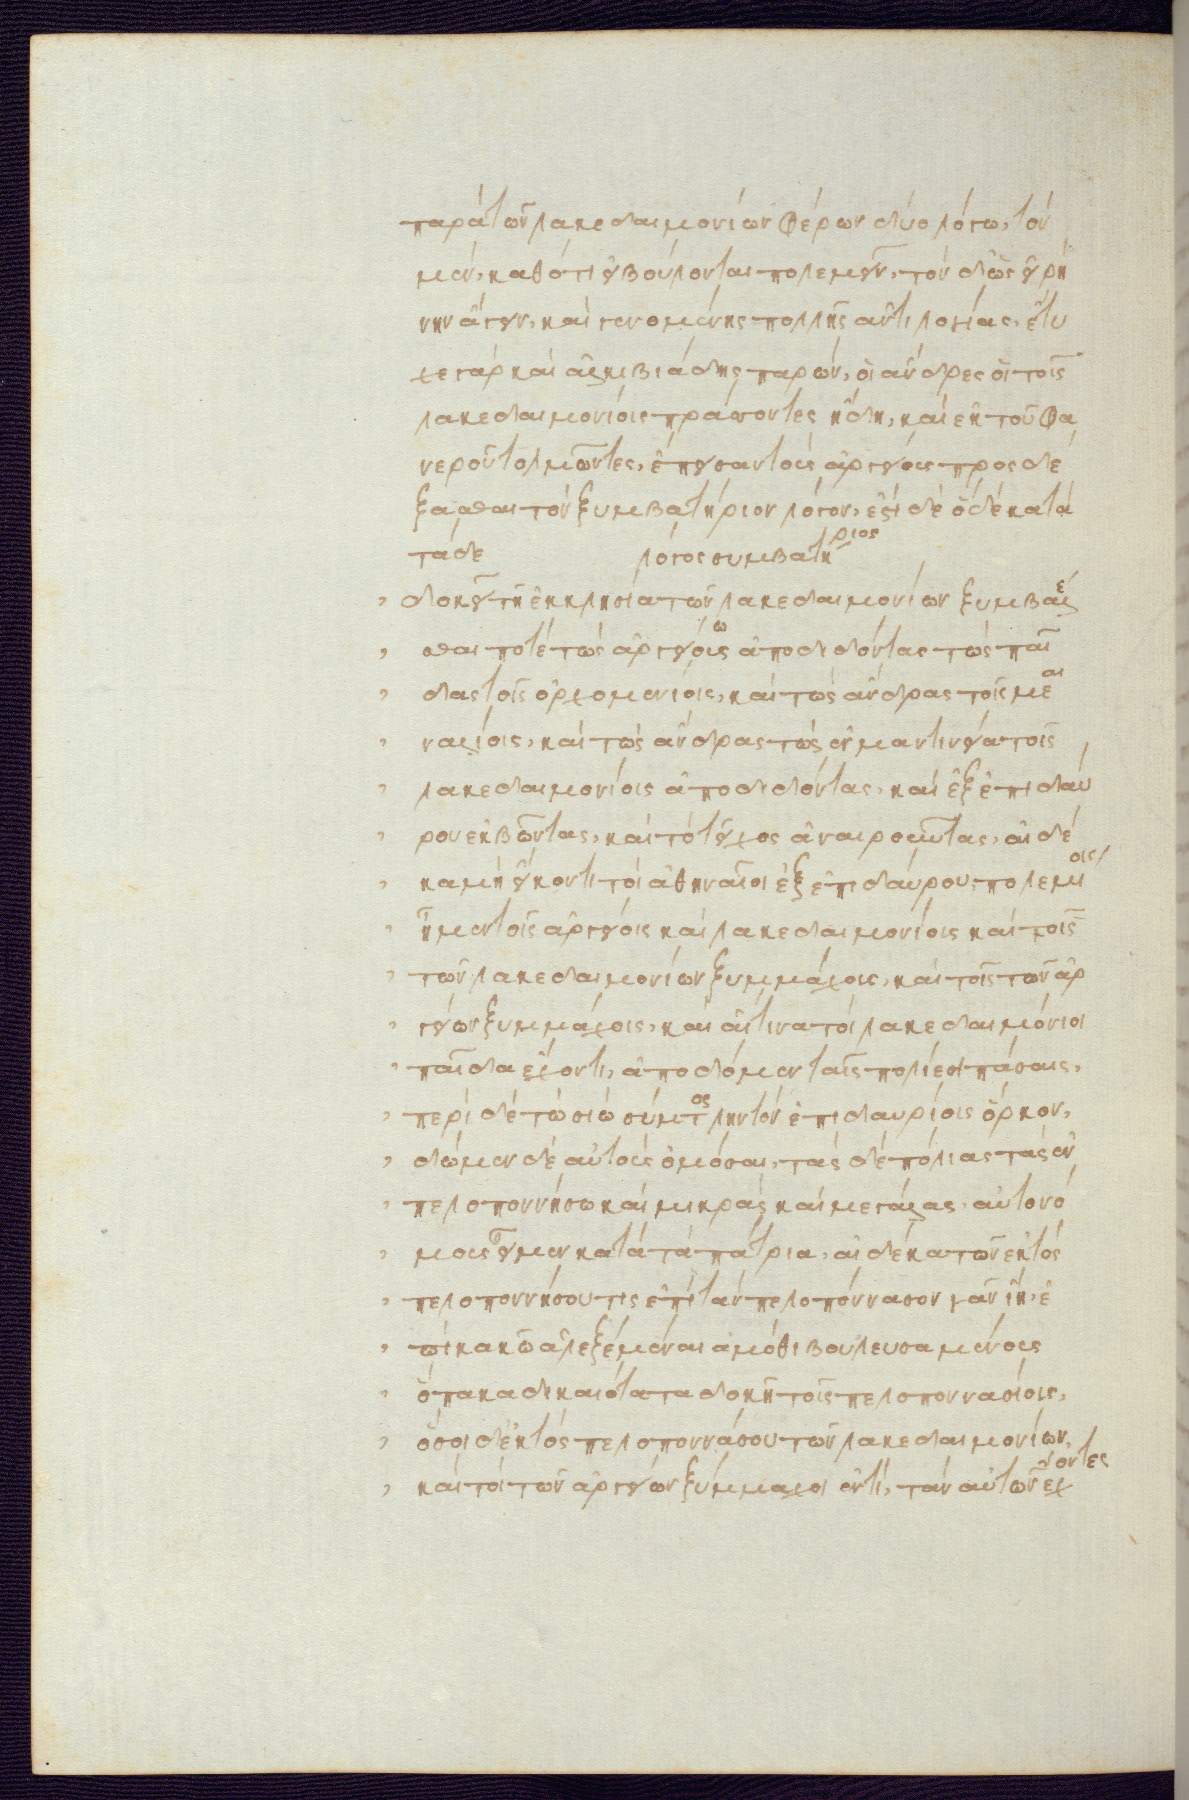 παρὰ τῶν λακεδαιμονίων φέρων δύο λόγω, τὸν
μὲν, καθότι εἰ βούλονται πολεμεῖν, τὸν δ' ὡς εἰρή
νην ἄγειν, καὶ γενομένης πολλῆς ἀντιλογίας, ἔτυ
χε γὰρ καὶ ἀλκιβιάδης παρὼν, οἱ ἄνδρες οἱ τοῖς
λακεδαιμονίοις πράσσοντες ἤδη, καὶ ἐκ τοῦ φα
νεροῦ τολμῶντες, ἔπεισαν τοὺς ἀργείους προσδέ
ξασθαι τὸν ξυμβατήριον λόγον, ἔστι δὲ ὅδε κατὰ
τάδε λόγος συμβατήριος
, δοκεῖ τῆ ἐκκλησία τῶν λακεδαιμονίων ξυμβαλέ
, σθαι ποτὲ τὼς ἀργείους ἀποδιδόντας τὼς παῖ
, δας τοῖς ὀρχομενίοις, καὶ τὼς ἄνδρας τοῖς με
, ναλίοις, καὶ τὼς ἄνδρας τὼς ἐν μαντινεία τοῖς
, λακεδαιμονίοις ἀποδιδόντας, καὶ ἐξ ἐπιδαύ
, ρου ἐκβῶντας, καὶ τὸ τεῖχος ἀναιροῦντας, αἰ δέ
, κα μὴ εἴκοντι τοὶ ἀθηναῖοι ἐξ ἐπιδαύρου, πολεμίοις
, ἦμεν τοῖς ἀργείοις καὶ λακεδαιμονίοις καὶ τοῖς
, τῶν λακεδαιμονίων ξυμμάχοις, καὶ τοῖς τῶν ἀρ
, γείων ξυμμάχοις, καὶ αἴ τινα τοὶ λακεδαιμόνιοι
, παῖδα ἔχοντι, ἀποδόμεν ταῖς πολίεσι πάσαις,
, περὶ δὲ τῶ σιῶ σύματος λην τὸν ἐπιδαυρίοις ὅρκον,
, δώμεν δὲ αὐτοὺς ὀμόσαι, τὰς δὲ πόλιας τὰς ἐν
, πελοποννήσω καὶ μικρὰς καὶ μεγάλας, αὐτονό
, μους εἶμεν κατὰ τὰ πάτρια, αἰ δέ κα τῶν ἐκτὸς
, πελοποννήσου τις ἐπὶ τὰν πελοπόννασον γᾶν ἴη, ἐ
, πὶ κακῶ ἀλεξέμεναι ἁμόθι βουλευσαμένους
, ὅπα κα δικαιότατα δοκῆ τοῖς πελοποννασίοις,
, ὅσοι δ' ἐκτὸς πελοποννάσου τῶν λακεδαιμονίων,
, καὶ τοὶ τῶν ἀργείων ξύμμαχοι ἐντὶ, τὰν αὐτῶν ἔχοντες